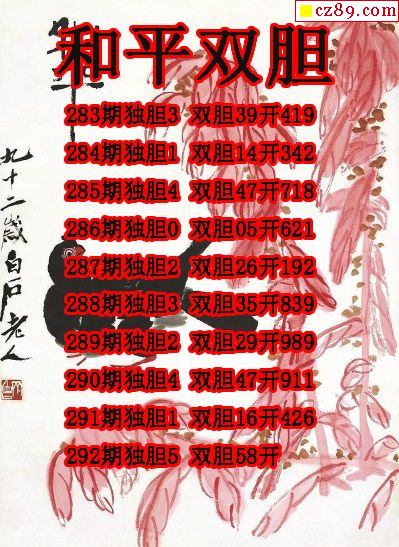 cz89.com
和平双胆
283期独胆3 双胆39开419
284期独胆1 双胆14开342
285期独胆4 双胆47开718
286期独胆0 双胆05开621
287期独胆2 双胆26开192
288期独胆3 双胆35开839
289期独胆2 双胆29开989
290期独胆4 双胆47开911
291期独胆1 双胆16开426
292期独胆5 双胆58开
九十二岁白石老人